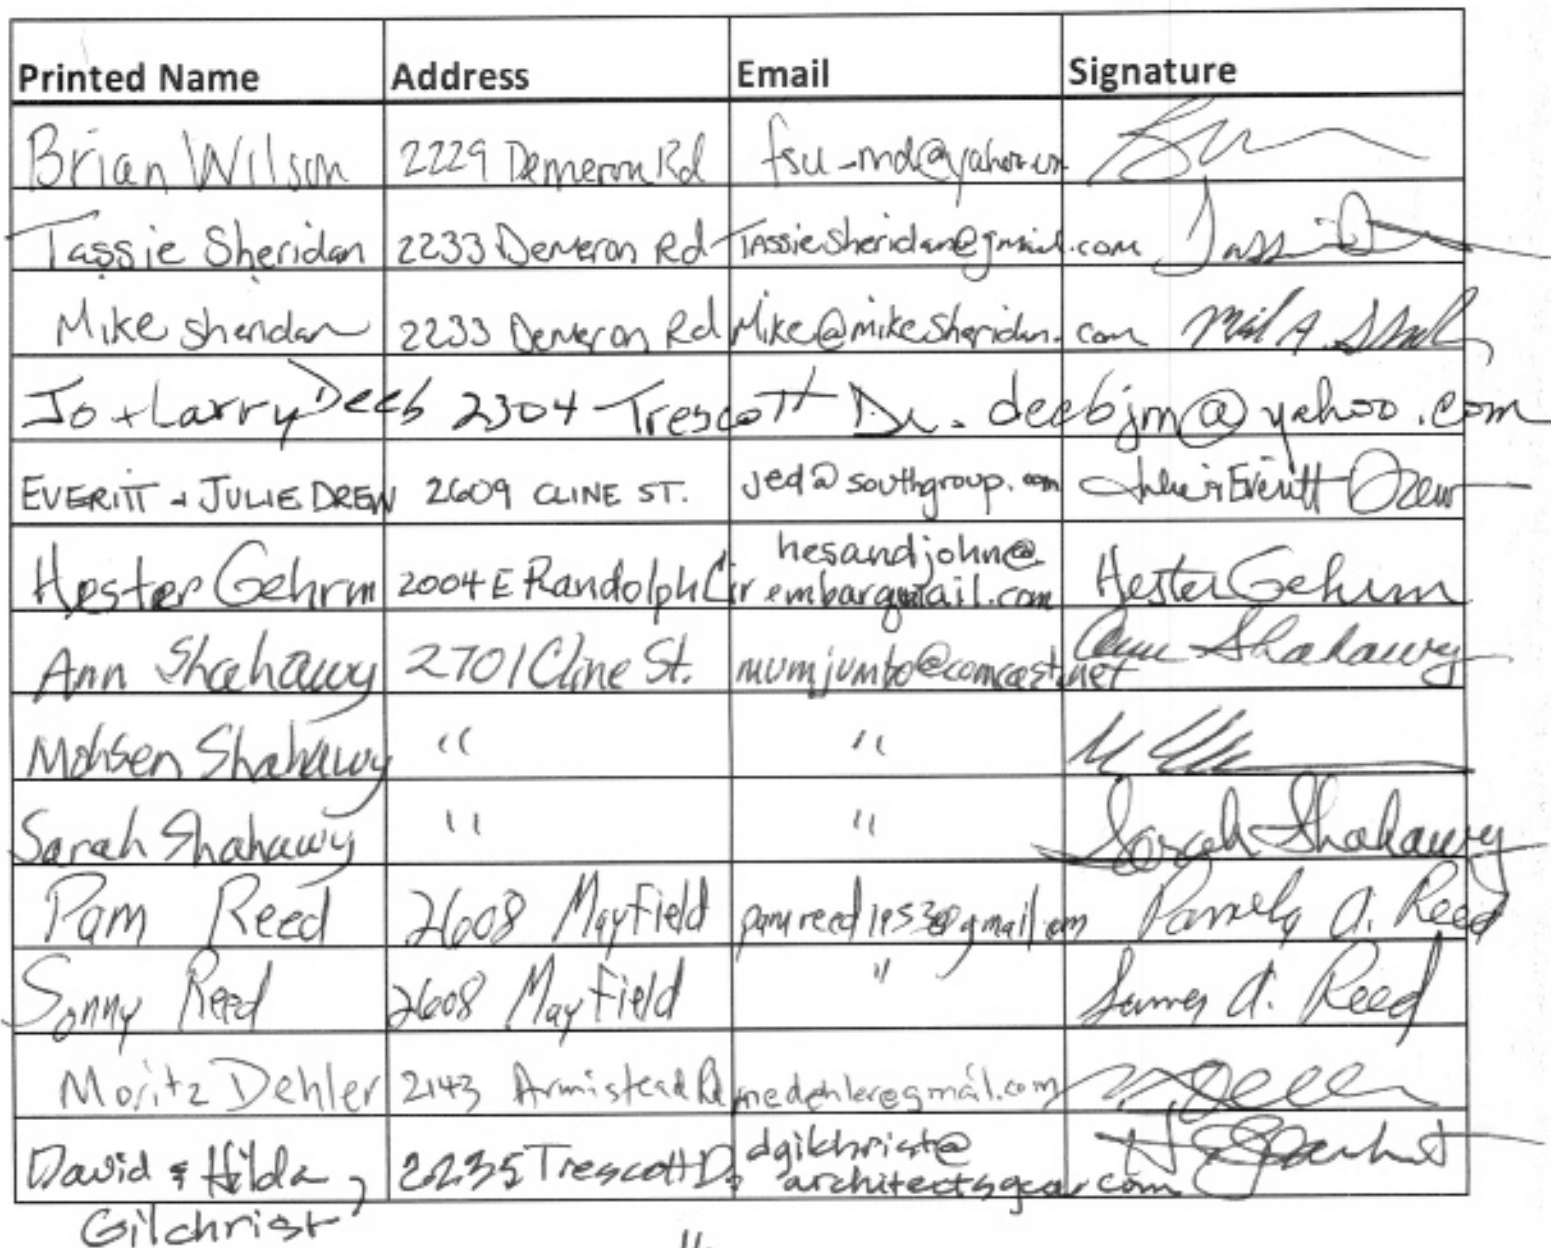 Printed Name Address Email Signature
Brian Wilson 2229 Demeron Rd fsu_md@yahoo.com
Tassie Sheridan 2233 Demeron Rd Tassiesheridan@gmail.com
Mike Sheridan 2233 Demeron Rd Mike@mikesheridan.com
Jo + Larry Deeb 2304 Trescott Dr. deebjm@yahoo.com
EVERITT + JULIE DREW 2609 CLINE ST. jed@southgroup.com Julie & Everitt Drew
Hester Gehrm 2004 E Randolph Cir hesandjohn@
embarqmail.com Hester Gehrm
Ann Shahawy 2701 Cline St. mumjumbo@comcast.net Ann Shahawy
Mohsen Shahawy " "
Sarah Shahawy " " Sarah Shahawy
Pam Reed 2608 Mayfield pamreed1953@gmail.com Pamela A. Reed
Sonny Reed 2608 Mayfield " James A. Reed
Moritz Dehler 2143 Armistead Rd medehler@gmail.com
David & Hilda 2235 Trescott Dr dgilchrist@
architectsgcor.com
Gilchrist